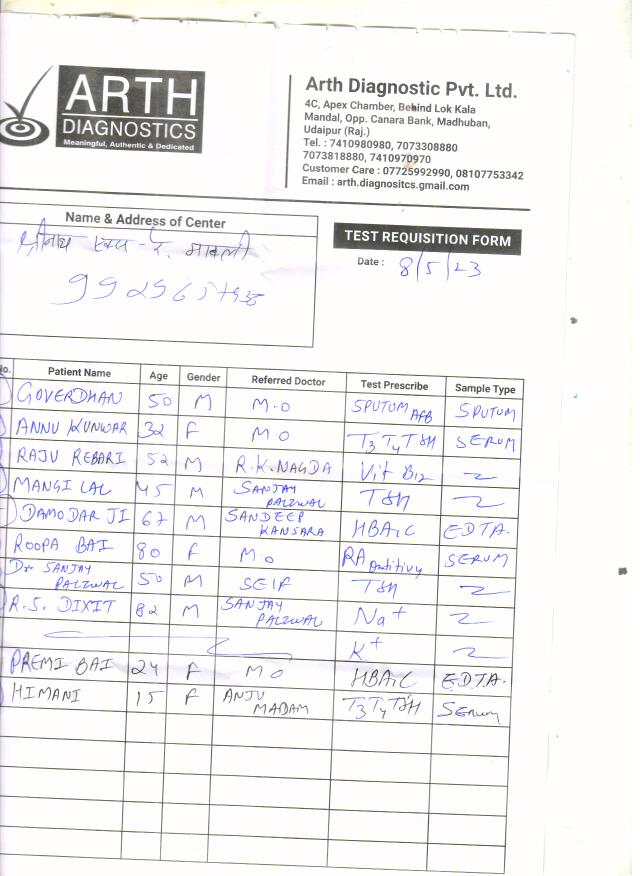 ARTH
DIAGNOSTICS
Meaningful, Authentic & Dedicated
Arth Diagnostic Pvt. Ltd.
4C, Apex Chamber, Behind Lok Kala
Mandal, Opp. Canara Bank, Madhuban,
Udaipur (Raj.)
Tel. : 7410980980, 7073308880
7073818880, 7410970970
Customer Care : 07725992990, 08107753342
Email : arth.diagnositcs.gmail.com
Name & Address of Center
श्रीनाथ मावली
TEST REQUISITION FORM
Date : 8/5/23
No. Patient Name Age Gender Referred Doctor Test Prescribe Sample Type
GOVERDHAN 50 M M.O SPUTUM AFB SPUTUM
ANNU KUNWAR 32 F M O T3 T4 TSH SERUM
RAJU REBARI 52 M R.K.NAGDA Vit B12 ~
MANGI LAL 45 M SANJAY PALIWAL TSH ~
DAMODAR JI 67 M SANDEEP KANSARA HBA1C EDTA.
ROOPA BAI 80 F M.O RA SERUM
Dr SANJAY PALIWAL 50 M SELF TSH ~
R.S. DIXIT 82 M SANJAY PALIWAL Na+ ~
K+ ~
PREMI BAI 24 F M O HBA1C E.D.T.A.
HIMANI 15 F ANJU MADAM T3 T4 TSH Serum